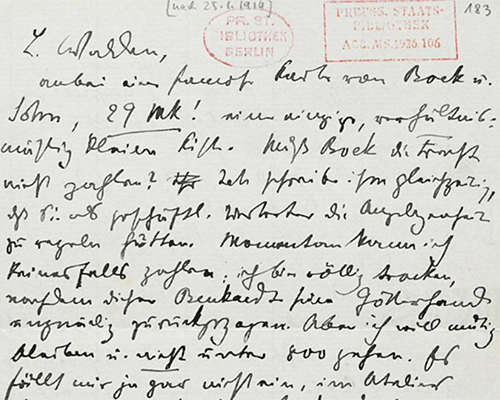 [nach 25.6.1914]
PR. ST.
BIBLIOTHEK
BERLIN
PREUSS. STAATS-
BIBLIOTHEK
ACC. MS. 1926. 106
183
L. Walden,
anbei eine famose Karte von Bock u.
Sohn, 29 Mk! eine einzige, verhältnis-
mäßig kleine Kiste. Muß Bock die Fracht
nicht zahlen? Ich schreibe ihm gleichzeitig,
daß Sie als geschäftl. Vertreter die Angelegenheit
zu regeln hätten. Momentan kann ich
keinesfalls zahlen; ich bin völlig trocken,
nachdem dieser seine Götterhand
ungnädig zurückgezogen. Aber ich will mutig
bleiben u. nicht unter 800 gehen. Es
fällt mir ja gar nicht ein, im Atelier